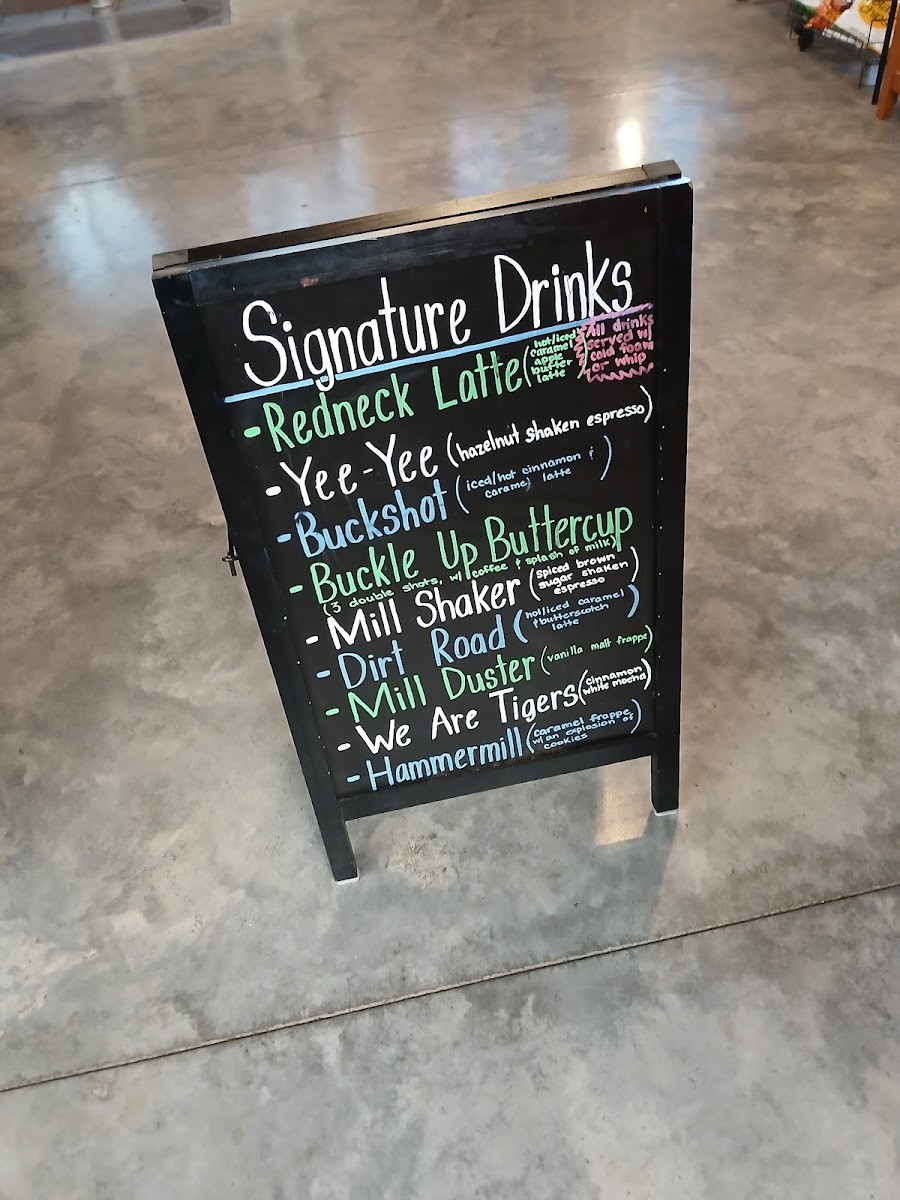 Signature Drinks
All drinks
served w/
cold foam
or whip
- Redneck Latte (hot/iced
caramel
apple
butter
latte)
- Yee-Yee (hazelnut shaken espresso)
- Buckshot (iced/hot cinnamon &
caramel latte)
- Buckle Up Buttercup
(3 double shots, w/ coffee & splash of milk)
- Mill Shaker (spiced brown
sugar shaken
espresso)
- Dirt Road (hot/iced caramel
& butterscotch
latte)
- Mill Duster (vanilla malt frappe)
- We Are Tigers (cinnamon
white mocha)
- Hammermill (caramel frappe
w/ an explosion of
cookies)